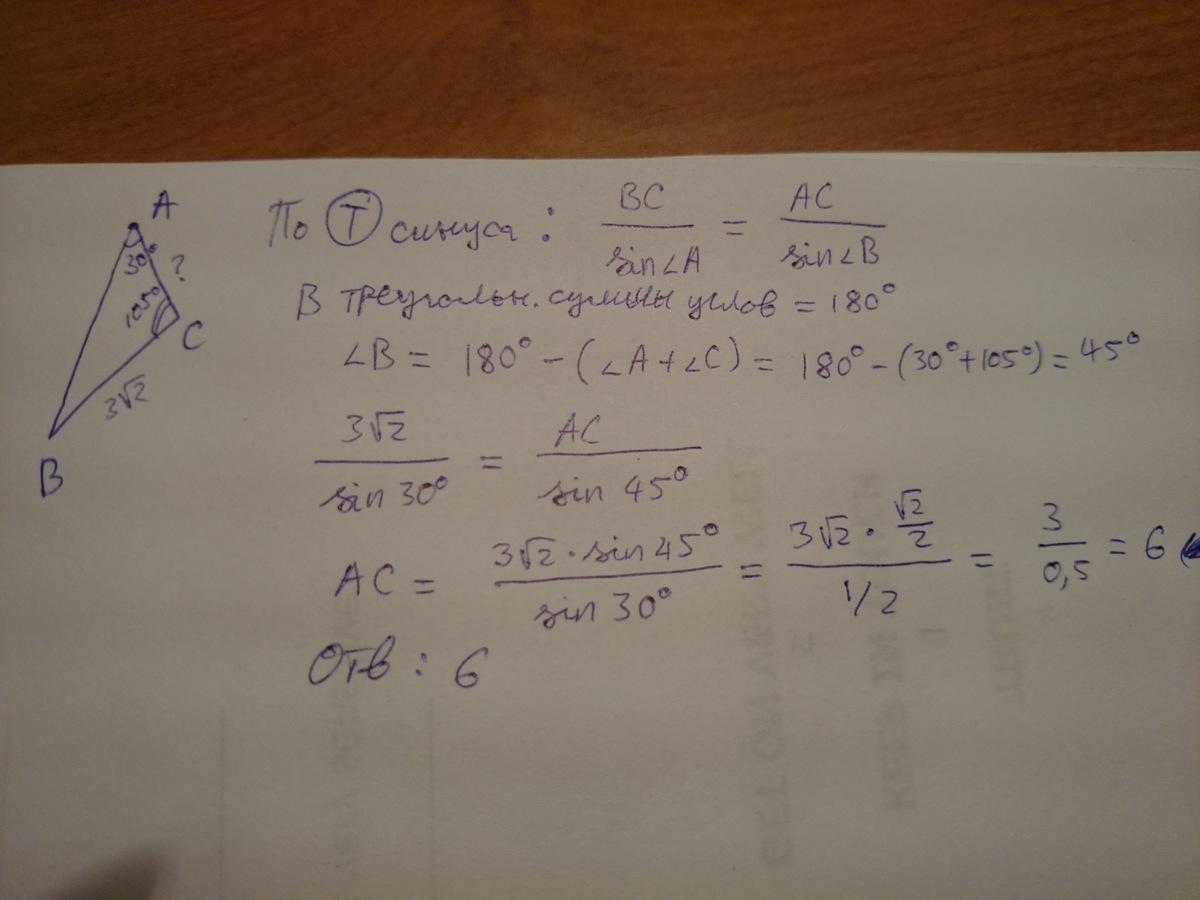 A
30°
?
105°
C
3√2
B
По Т синуса: BC/sin∠A = AC/sin∠B
В треугольн. суммы углов = 180°
∠B = 180° - (∠A+∠C) = 180° - (30°+105°) = 45°
3√2/sin 30° = AC/sin 45°
AC = 3√2 · sin 45°/sin 30° = 3√2 · √2/2/1/2 = 3/0,5 = 6
Отв: 6
GET ON VERY WELL
KEEP IN TOUCH